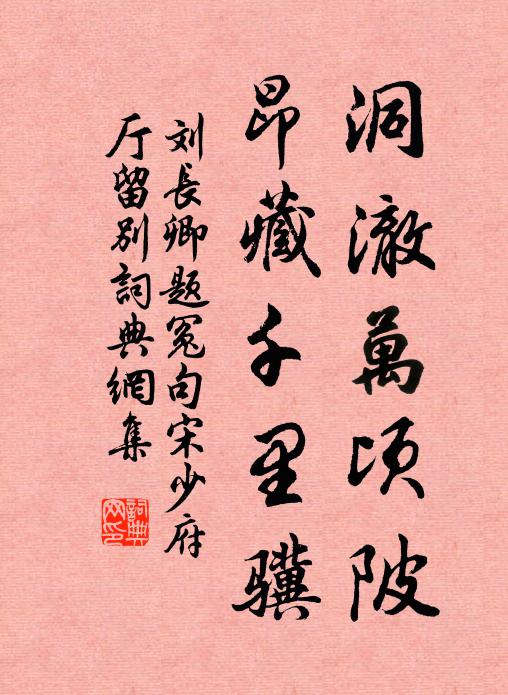 洞澈萬頃陂
昂藏千里驥
刘長卿題冤句宋少府
厅留別詞典網集
詞典網印